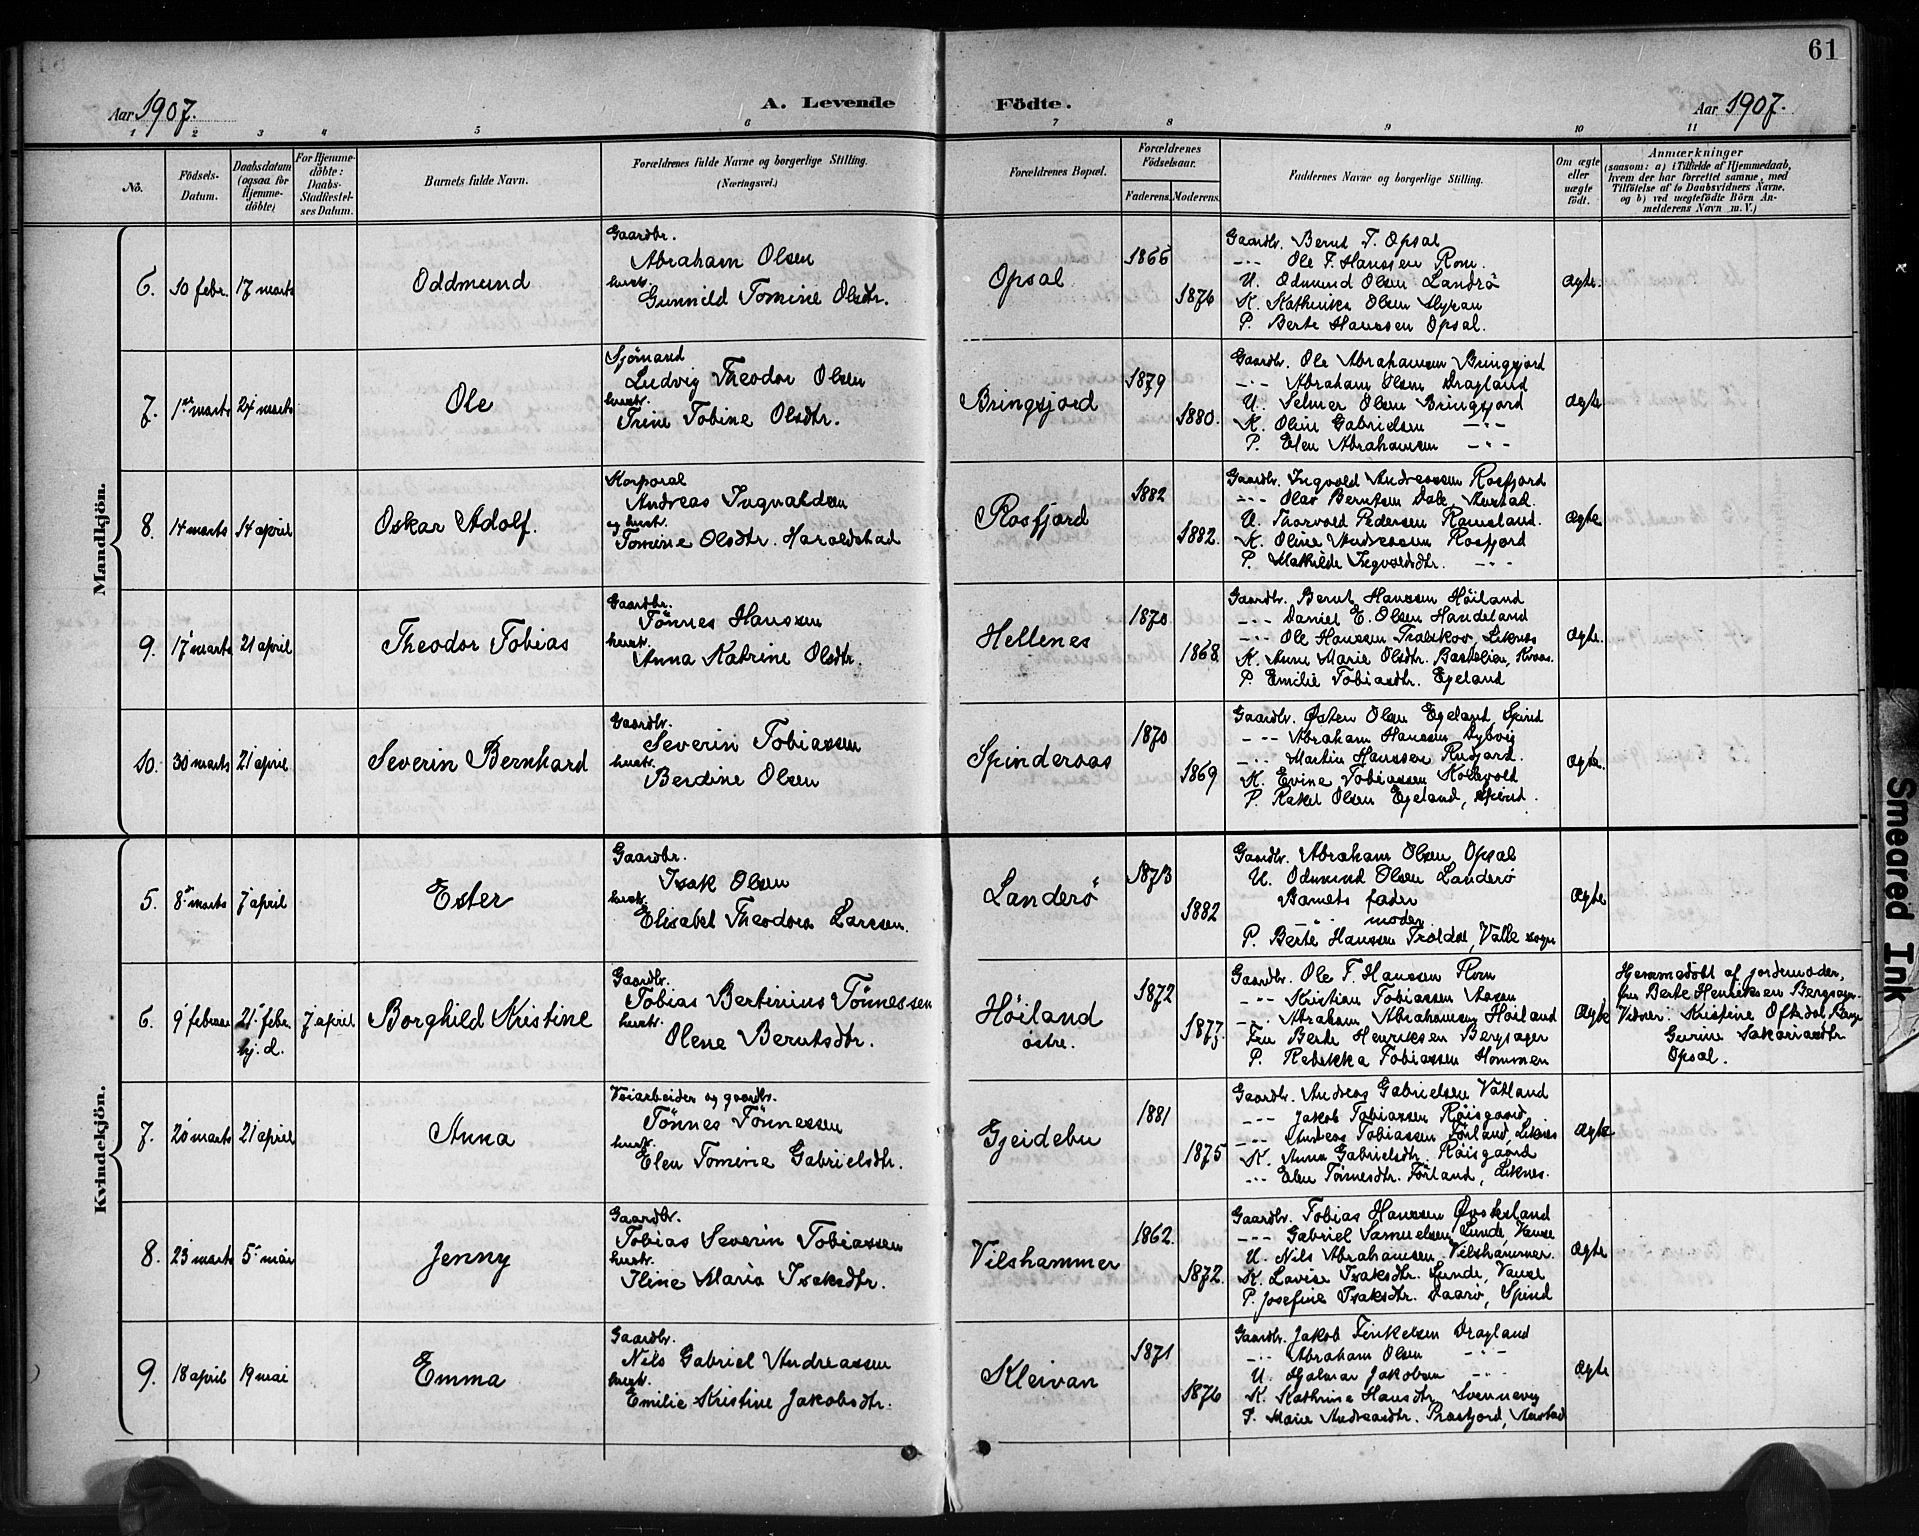 61
Aar 1907.
A. Levende Födte.
Aar 1907.
1 2 3 4 5 6 7 8 9 10 11
No.
Födsels-
Datum.
Daabsdatum
(ogsaa for
Hjemme-
döbte)
For Hjemme-
döbte:
Daabs-
Stadfæstel-
ses Datum.
Barnets fulde Navn.
Forældrenes fulde Navne og borgerlige Stilling.
(Næringsvei.)
Forældrenes Bopæl.
Forældrenes
Födselsaar.
Faderens.
Moderens.
Faddernes Navne og borgerlige Stilling.
Om ægte
eller
uægte
født.
Anmærkninger
(saasom: a) i Tilfælde af Hjemmedaab,
hvem der har forrettet samme, med
Tilföielse af to Daabsvidners Navne.
og b) ved uægtefödte Börn An-
melderens Navn m. V.)
Mandkjön.
6. 10 febr. 17 marts
Oddmund
Gaardbr.
Abraham Olsen
hustr.
Gunnild Tomine Olsdtr.
Opsal
1866
1876
Gaardbr. Bernt T. Opsal
-"- Ole F. Hanssen Rom.
U. Odmund Olsen Landrö
K. Kathrinka Olsen
P. Berte Hanssen Opsal.
Ægte.
7. 1ste marts 24 marts
Ole
Sjömand
Ludvig Theodor Olsen
hustr.
Trine Tobine Olsdtr.
Bringsjord
1879
1880.
Gaardbr. Ole Abrahamsen Bringsjord
-"- Abraham Olsen Dragland
U. Selmer Olsen Bringsjord
K. Oline Gabrielsen -"-
P. Elen Abrahamsen -"-
Ægte
8. 14 marts 14 april
Oskar Adolf.
Korporal
Andreas Ingvaldsen
og hustr.
Tomine Olsdtr. Haroldstad
Rosfjord
1882
1882.
Gaardbr. Ingvold Andreassen Rosfjord
-"- Olav Berntsen Dale, Austad.
U. Thorvold Pedersen Ramsland.
K. Oline Andreassen Rosfjord
P. Mathilde Ingvoldsdtr. -"-
Ægte
9. 17 marts 21 april
Theodor Tobias
Gaardbr.
Tönnes Hanssen
hustr.
Anna Katrine Olsdtr.
Hellenes
1870
1868.
Gaardbr. Bernt Hanssen Höiland
-"- Daniel E. Olsen Handeland
-"- Ole Hanssen Liknes
K. Anne Marie Olsdtr. Kvaas.
P. Emilie Tobiasdtr. Egeland
Ægte.
10. 30 marts 21 april
Severin Bernhard
Gaardbr.
Severin Tobiassen
hustr.
Berdine Olsen
Spinderaas
1870
1869
Gaardbr. Østen Olsen Egeland, Spind
-"- Abraham Hanssen Dybvig
-"- Martin Hanssen
K. Evine Tobiassen
P. Rakel Olsen Egeland, Spind.
Ægte.
Kvindekjön.
5. 8de marts 7 april
Ester
Gaardbr.
Isak Olsen
hustr.
Elisabet Theodora Larssen.
Landerö
1873
1882
Gaardbr. Abraham Olsen Opsal
U. Odmund Olsen Landerö
Barnets fader
-"- moder
P. Berte Hanssen Troldal, Valle sogn
Ægte
6. 9 februar 21 febr. hj. d. 7 april
Borghild Kristine
Gaardbr.
Tobias Bertinius Tönnessen
hustr.
Olene Berntsdtr.
Höiland
östre.
1872
1877.
Gaardbr. Ole F. Hanssen Rom
-"- Kristian Tobiassen Aasen
-"- Abraham Abrahamsen Höiland
Fru Berte Henriksen Bergsager
P. Rebekka Tobiassen Hommen
Ægte
Hjemmedöbt af jordemoder,
fru Berte Henriksen Bergsager.
Vidner. Kristine Oftedal
Gurine Sakariasdtr
Opsal.
7. 20 marts 21 april
Anna
Veiarbeider og gaardbr.
Tönnes Tönnessen
hustr.
Elen Tomine Gabrielsdtr.
Gjeidebu
1881
1875
Gaardbr. Andreas Gabrielsen Vatland
-"- Jakob Tobiassen Röisgaard,
-"- Andreas Tobiassen Förland, Liknes
K. Anna Gabrielsdtr. Röisgaard
-"- Elen Tönnesdtr. Förland, Liknes.
Ægte
8. 23 marts 5 mai
Jenny
Gaardbr.
Tobias Severin Tobiassen
hustr.
Iline Maria Isaksdtr.
Vilshammer
1862.
1872.
Gaardbr. Tobias Hanssen Øvoksland
-"- Gabriel Samuelsen Lunde, Vanse
U. Nils Abrahamsen, Vilshammer
K. Lovise Isaksdtr. Lunde, Vanse
P. Josefine Isaksdtr. Daarö, Spind
Ægte
9. 18 april 19 mai
Emma
Gaardbr.
Nils Gabriel Andreassen
hustr.
Emilie Kristine Jakobsdtr.
Kleivan
1871
1876
Gaardbr. Jakob Terkelsen Dragland
-"- Abraham Olsen -"-
U. Hjalmar Jakobsen -"-
K. Kathrine Hansdtr. Svennevig
P. Marie Andreasdtr. Rosfjord, Austad
Ægte
Smeared Ink